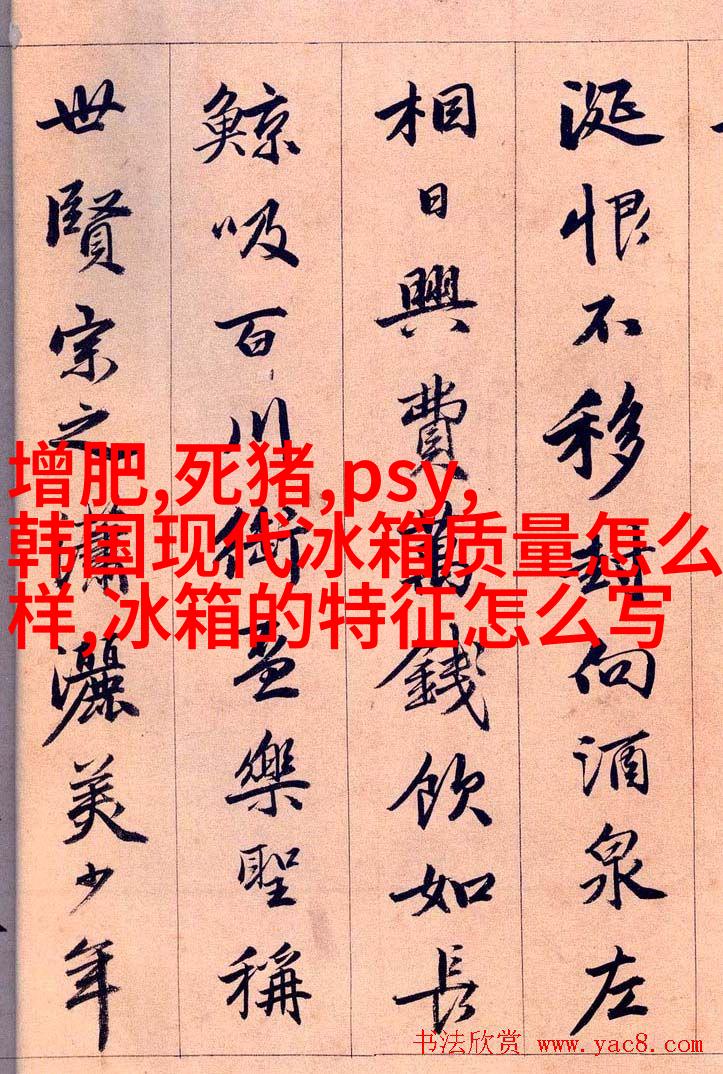 涎恨不移封向酒泉左
相日興費萬錢飲如長
鯨吸百川銜盃樂聖稱
世賢宗之瀟灑美少年
增肥,死猪,psy,
韩国现代冰箱质量怎么
样,冰箱的特征怎么写
书法欣赏 www.yac8.com